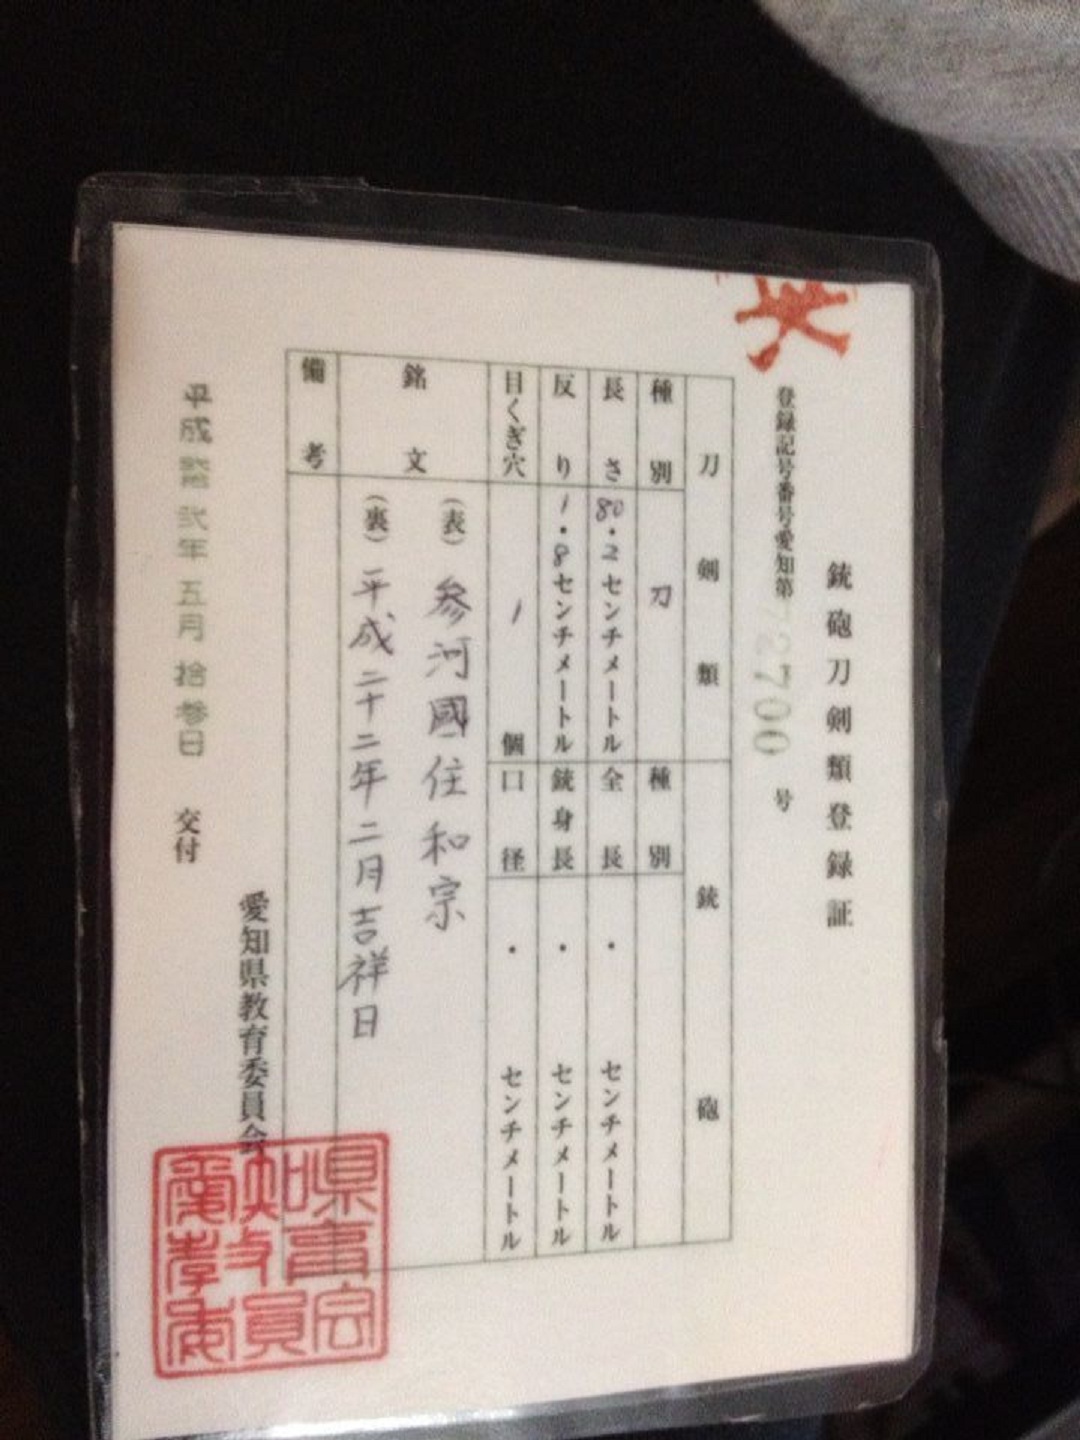 銃砲刀剣類登録証
登録記号番号愛知第72700号
刀剣類
種別 刀
長さ 80.2センチメートル
反り 1.8センチメートル
目くぎ穴 1個
銃砲
種別
全長 ・ センチメートル
銃身長 ・ センチメートル
口径 ・ センチメートル
銘文
(表) 参河國住和宗
(裏) 平成二十二年二月吉祥日
備考
愛知県教育委員会
平成 弐年五月拾参日 交付